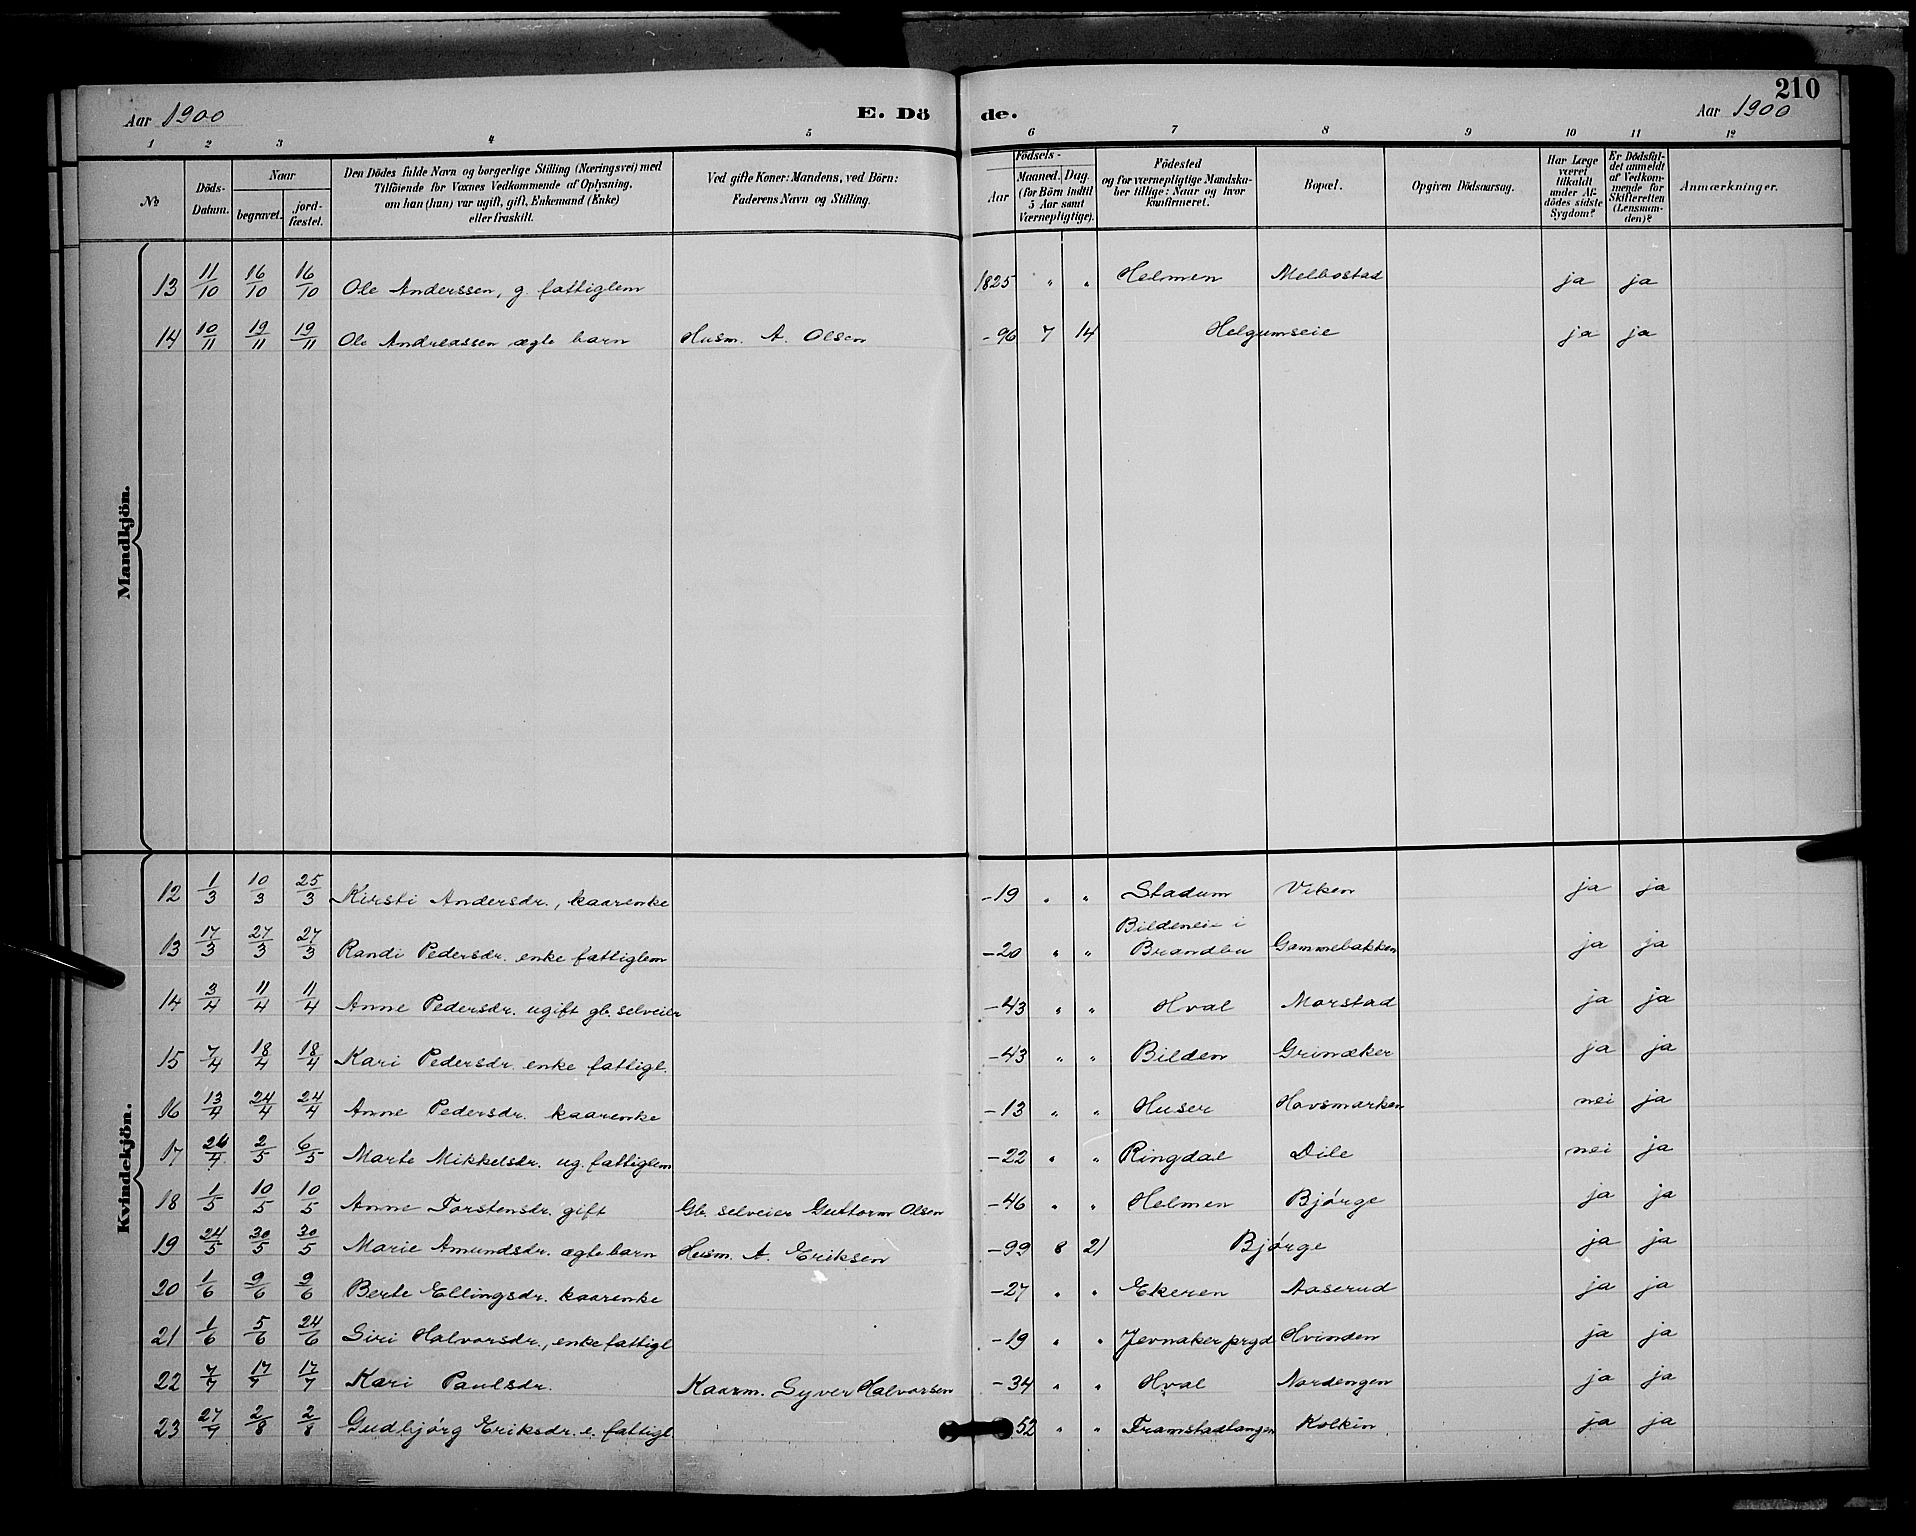 210
Aar 1900 E. Dö de. Aar 1900
1 2 3 4 5 6 7 8 9 10 11 12
No
Döds-Datum.
Naar
begravet.
jordfæstet.
Den Dödes fulde Navn og borgerlige Stilling (Næringsvei) med
Tilföiende for Voxnes Vedkommende af Oplysning,
om han (hun) var ugift, gift, Enkemand (Enke)
eller fraskilt.
Ved gifte Koner: Mandens, ved Börn:
Faderens Navn og Stilling.
Födsels-
Aar
Maaned. Dag.
(for Börn indtil
5 Aar samt
Værnepligtige).
Födested
og for værnepligtige Mandska-
ber tillige: Naar og hvor
konfirmeret.
Bopæl.
Opgiven Dödsaarsag.
Har Læge
været
tilkaldt
under Af-
dödes sidste
Sygdom?
Er Dödsfal-
det anmeldt
af Vedkom-
mende for
Skifteretten
(Lensman-
den)?
Anmærkninger.
Mandkjön.
13 11/10 16/10 16/10 Ole Anderssen, g. fattiglem 1825 " " Helmen Melbostad ja ja
14 10/11 19/11 19/11 Ole Andreassen ægte barn Husm. A. Olsen -96 7 14 Helgumseie ja ja
Kvindekjön.
12 1/3 10/3 25/3 Kirsti Andersdr., kaarenke -19 " " Stadum Viken ja ja
13 17/3 27/3 27/3 Randi Pedersdr. enke fattiglem -20 " " Bildeneie i Brandbu Gammebakken ja ja
14 3/4 11/4 11/4 Anne Pedersdr. ugift gb. selveier -43 " " Hval Morstad ja ja
15 7/4 18/4 18/4 Kari Pedersdr. enke fattigl. -43 " " Bilden Grinaker ja ja
16 13/4 24/4 24/4 Anne Pedersdr. kaarenke -13 " " Huser Hovsmarken nei ja
17 26/4 2/5 6/5 Marte Mikkelsdr. ug. fattiglem -22 " " Ringdal Dile nei ja
18 1/5 10/5 10/5 Anne Torstensdr. gift Gb. selveier Guttorm Olsen -46 " " Helmen Bjørge ja ja
19 24/5 30/5 30/5 Marie Amundsdr. ægte barn Husm. A. Eriksen -99 8 21 Bjørge ja ja
20 1/6 9/6 9/6 Berte Ellingsdr. kaarenke -27 " " Ekeren Aaserud ja ja
21 1/6 5/6 24/6 Siri Halvorsdr., enke fattigl -19 " " Jevnaker prgd Hvinden ja ja
22 7/7 17/7 17/7 Kari Paulsdr. Kaarm. Syver Halvorsen -34 " " Hval Nordengen ja ja
23 27/7 2/8 2/8 Gudbjørg Eriksdr. e. fattigl 52 " " Framstadtangen Kolkin ja ja